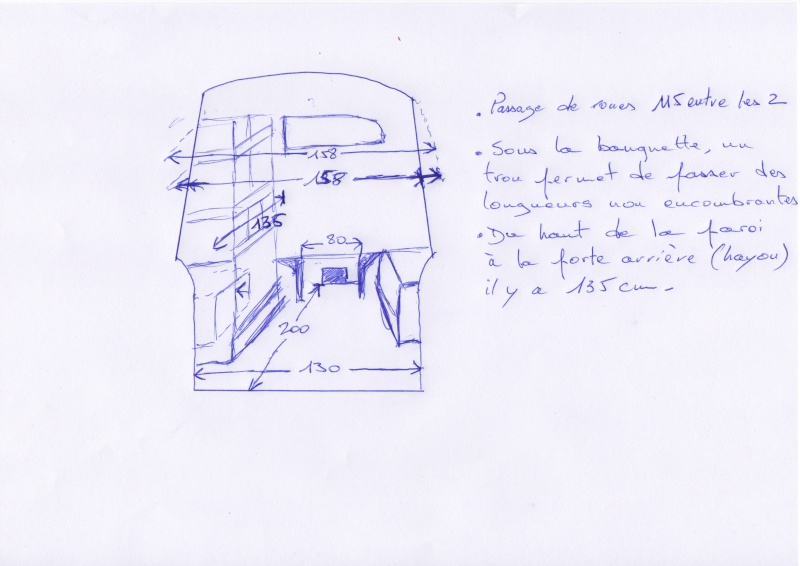 158
158
135
80
200
130
. Passage de roues 115 entre les 2
. Sous la banquette, un
trou permet de passer des
longueurs non encombrantes
. Du haut de la paroi
à la porte arrière (hayon)
il y a 135 cm.